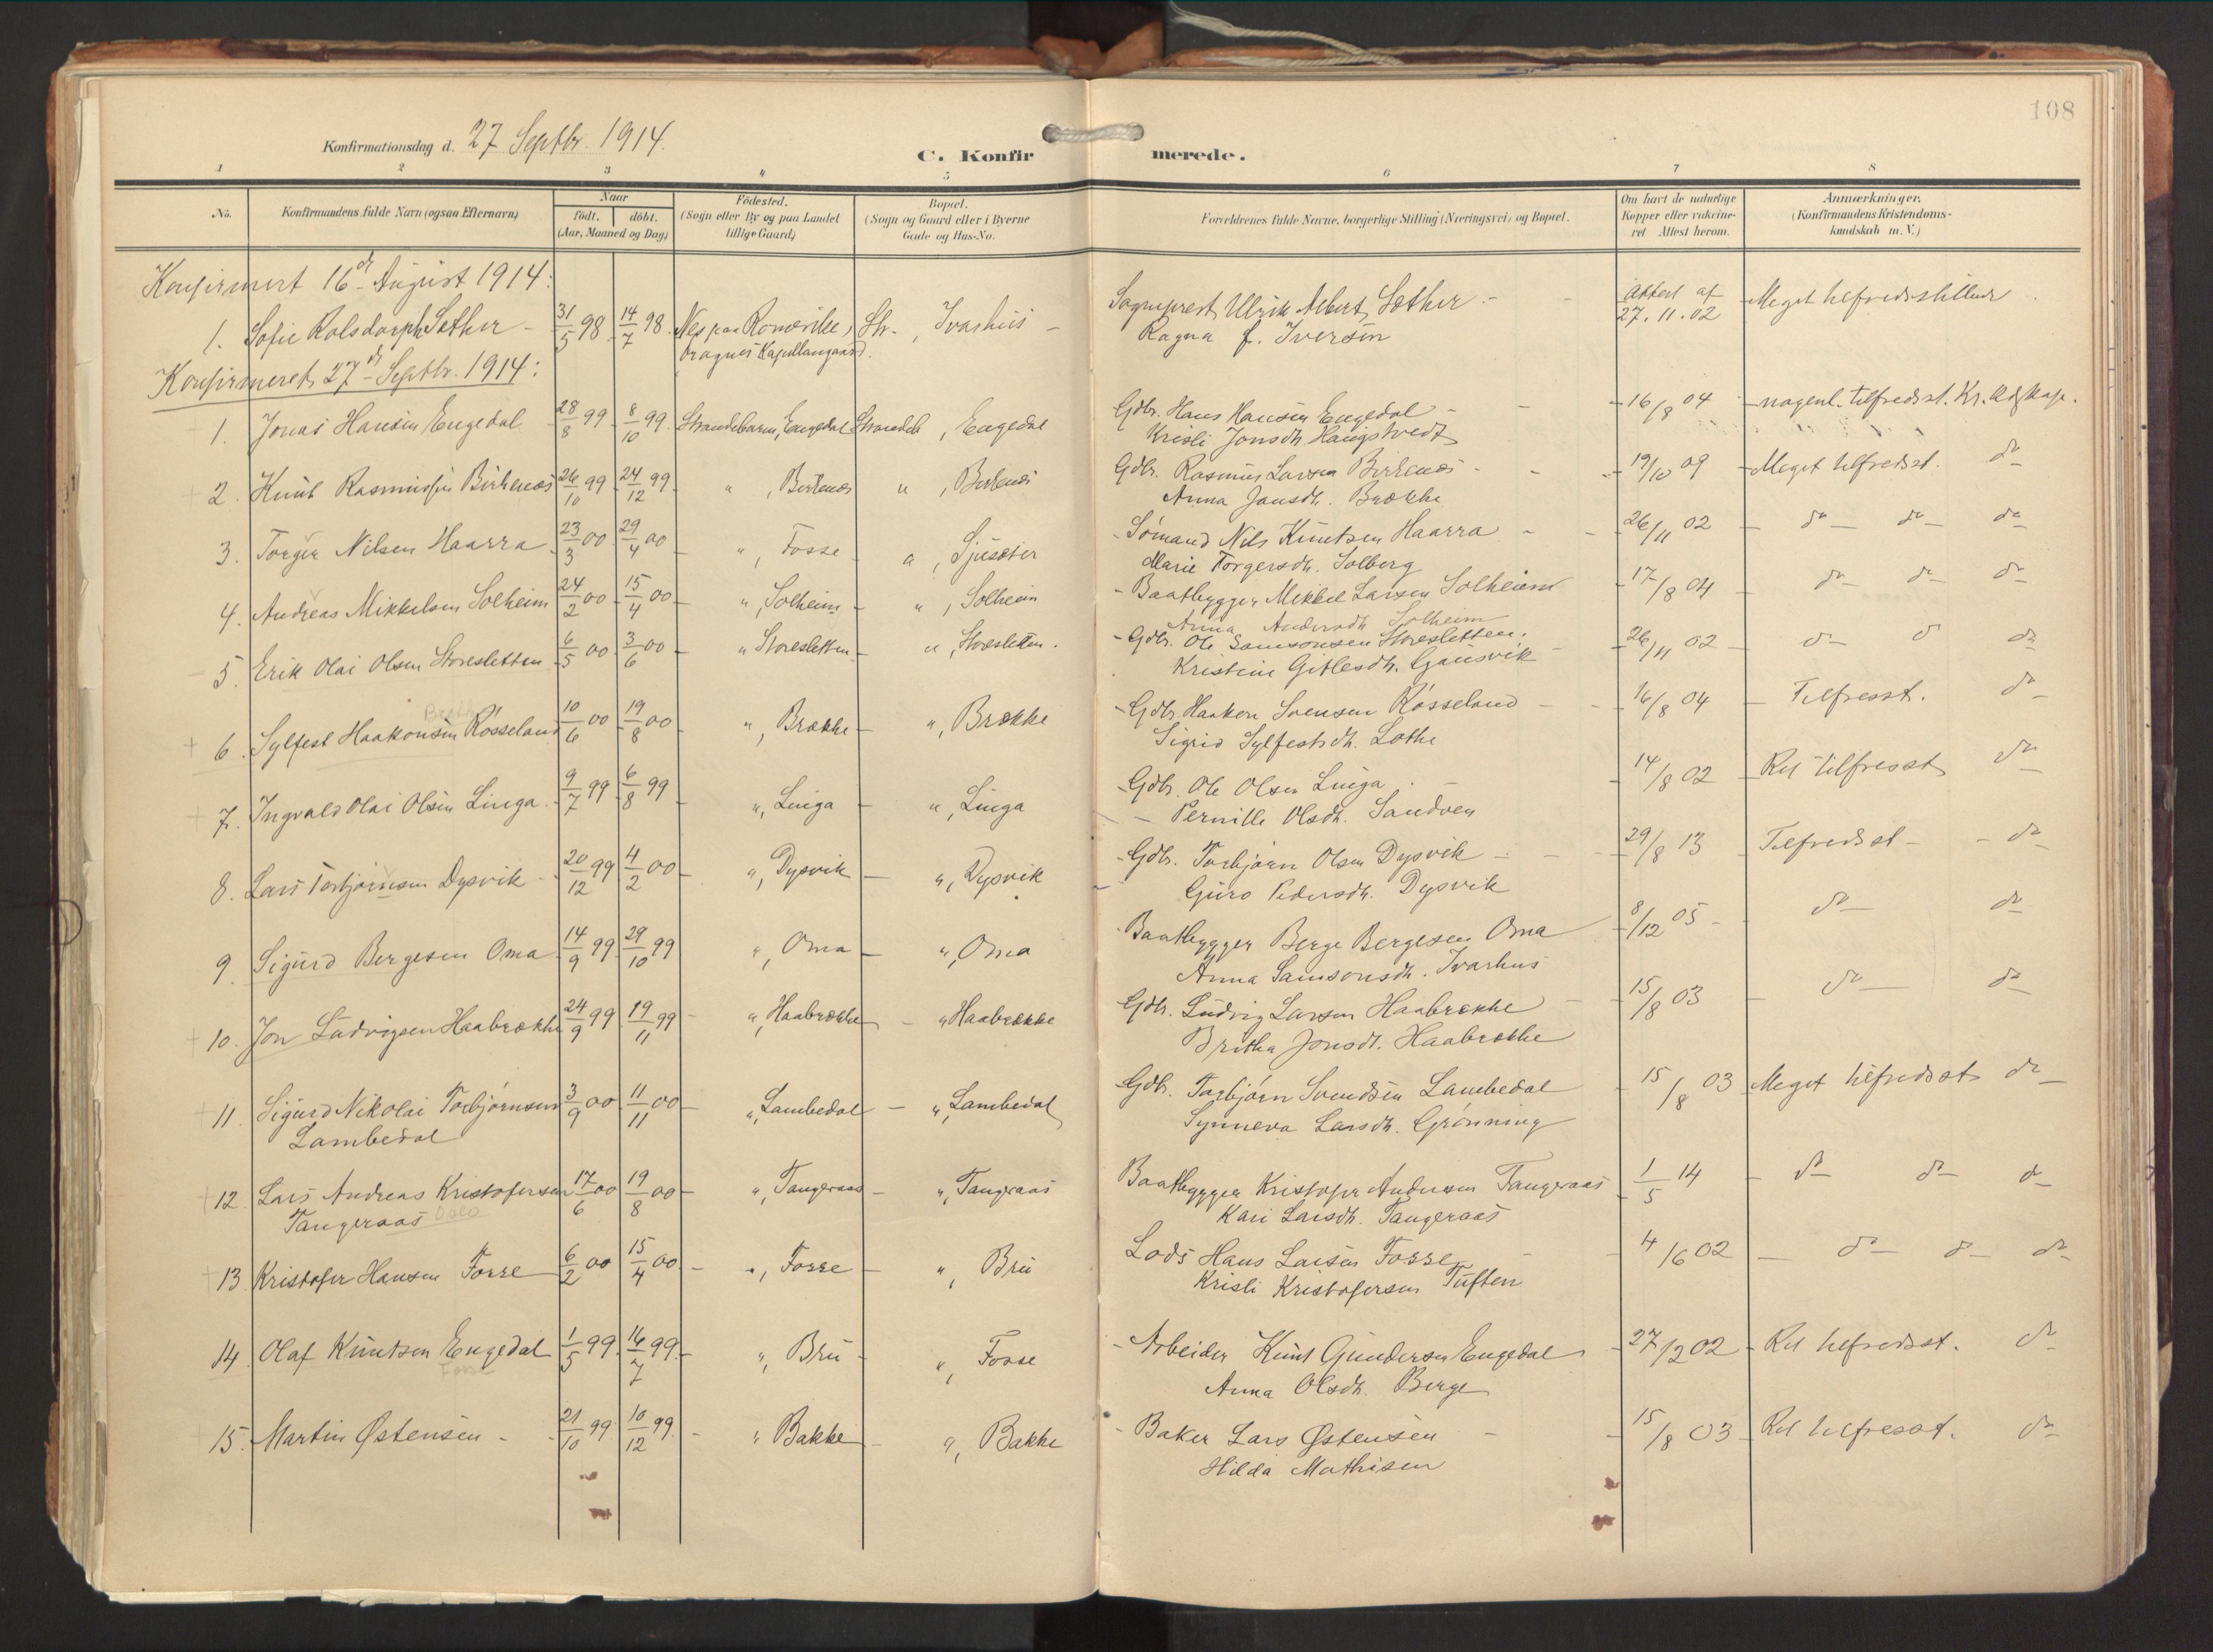 108
Konfirmationsdag d. 27 Septbr. 1914.
C. Konfirmerede.
1 2 3 4 5 6 7 8
No. Konfirmandens fulde Navn (ogsaa Efternavn) Naar födt. döbt. (Aar, Maaned og Dag) Födested. (Sogn eller By og paa Landet tillige Gaard) Bopæl. (Sogn og Gaard eller i Byerne Gade og Hus-No. Forældrenes fulde Navne, borgerlige Stilling (Næringsvei) og Bopæl. Om havt de naturlige Kopper eller vakcineret Attest herom. Anmærkninger. (Konfirmandens Kristendomskundskab m. V.)
Konfirmert 16de August 1914:
1. Sofie Rolsdorph Sæther 31/5 98 14/7 98. Nes paa Romerike, Str., Ivarhus Sogneprest Ulrik Albert Sæther Attest af 27.11.02 Meget tilfredsstillende
Kapellangaard. Ragna f. Iversen
Konfirmeret 27de Septbr. 1914:
1. Jonas Hansen Engedal 28/8 99 8/10 99. Strandebarm, Engedal Strandeb, Engedal Gdbr. Hans Hansen Engedal 16/8 04 nogenl. tilfredsst. Kr.
Kristi Jonsdh. Haugstvedt
2. Knut Rasmussen Birkenes 26/10 99 24/12 99 ", Birkenes ", Birkenes Gdbr. Rasmus Larsen Birkenes 19/10 09 Meget tilfredsst. do
Anna Jansdh. Brække
3. Torger Nilsen Haarra 23/3 00 29/4 00 ", Fosse ", Sjusæter Sömand Nils Knutsen Haarra 26/11 02 do do do
Marie Torgersdh. Solberg
4. Andreas Mikkelsen Solheim 24/2 00 15/4 00 ", Solheim ", Solheim Baatbygger Mikkel Larsen Solheim 17/8 04 do do do
Anna Andersdh Solheim
5. Erik Olai Olsen Storesletten 6/5 00 3/6 00 " Storesletten ", Storesletten. Gdbr. Ole Samsonsen Storesletten. 26/11 02 do do do
Kristine Gitlesdh. Gausvik
6. Sylfest Haakonsen Rösseland 10/6 00 19/8 00 ", Brække ", Brække Gdbr Haakon Svensen Rösseland 16/8 04 Tilfresst. do
Sigrid Sylfestsdh. Lothe
7. Ingvald Olai Olsen Linga 9/7 99 6/8 99 ", Linga ", Linga Gdbr. Ole Olsen Linga 14/8 02 Ret tilfresst do
Pernille Olsdh. Sandven
8. Lars Torbjörnsen Dysvik 20/12 99 4/2 00 ", Dysvik ", Dysvik Gdbr. Torbjörn Olsen Dysvik 29/8 13 Tilfredsst do
Guro Pedersdh. Dysvik
9. Sigurd Bergesen Oma 14/9 99 29/10 99 ", Oma ", Oma Baatbygger Berge Bergesen Oma 8/12 05 do do
Anna Samsonsdh. Ivarhus
10. Jon Ludvigsen Haabrække 24/9 99 19/11 99 ", Haabrække " Haabrække Gdbr. Ludvig Larsen Haabrække 15/8 03 do do
Britha Jonsdt. Haabrække
11. Sigurd Nikolai Torbjörnsen 3/9 00 11/11 00 ", Lambedal ", Lambedal Gdb. Torbjörn Svendsen Lambedal 15/8 03 Meget tilfredsst do
Lambedal Synneva Larsdh. Grönning
12. Lars Andreas Kristofersen 17/6 00 19/8 00 ", Tangeraas ", Tangeraas Baatbygger Kristofer Andersen Tangeraas 1/5 14 do do do
Tangeraas Oslo Kari Larsdh. Tangeraas
13. Kristofer Hansen Fosse 6/2 00 15/4 00 ", Fosse ", Bru Lods Hans Larsen Fosse 4/6 02 do do do
Kristi Kristofersen Tuften
14. Olaf Knutsen Engedal 1/5 99 16/7 99. ", Bru ", Fosse Arbeider Knut Gundersen Engedal 27/2 02 Ret tilfredsst. do
Fosse Anna Olsdh. Berge
15. Martin Østensen 21/10 99. 10/12 99. " Bakke ", Bakke Baker Lars Østensen 15/8 03 Ret tilfresst. do
Hilda Mathisen